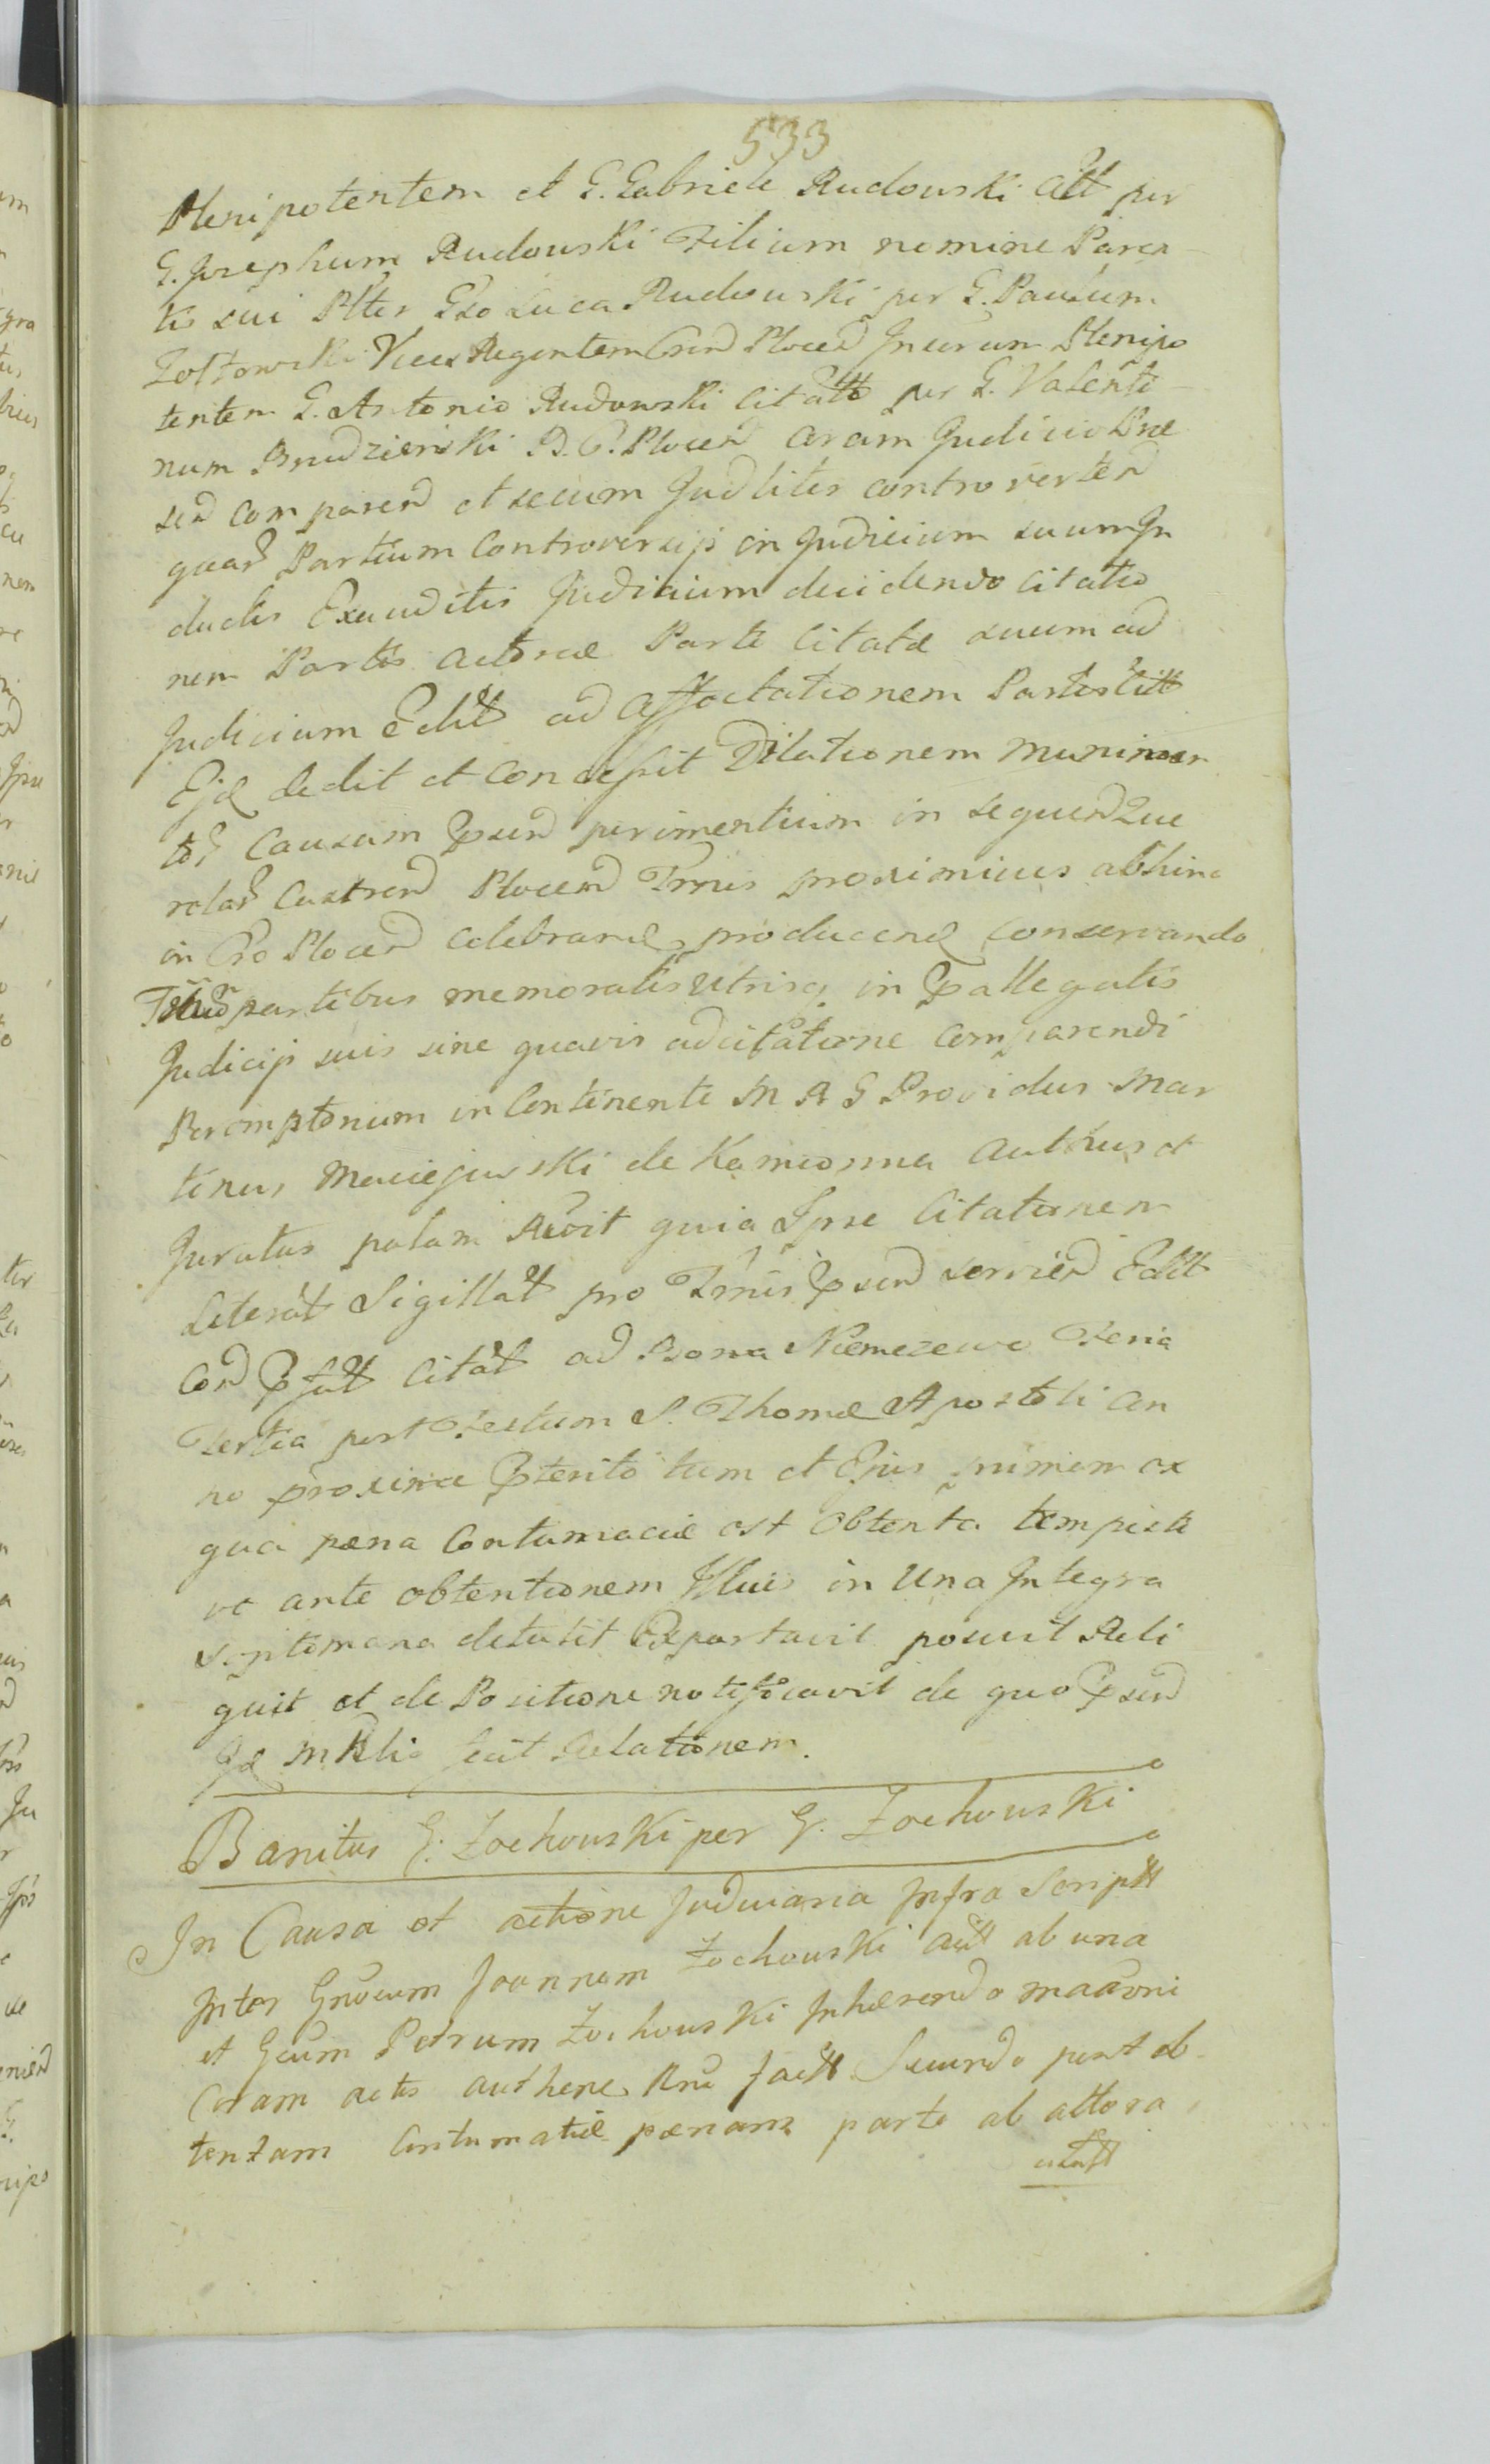 533
Plenipotentem et G. Gabriele Rudowski Citt per
G. Josephum Rudowski Filium nomine Paren
tis sui Plter Gso Luca Rudowski per G. Paulum
Zoltowski Vices Regentem Cnrd Plocen Juratum Plenipo
tentem G. Antonio Rudowski Citatto per G. Valenti
num Brudzienski B. C. Plocen Coram Judicio Prae
sen comparen et secum Judliter controverten
quar Partium Controversijs in Judicium suum In
ductis Exauditis Judicium decidendo Citatio
nem Partis Actoreae Parte Citatae suum ad
Judicium Editt ad Affectationem Partis Citt
Ejd dedit et Concessit Dilationem Munimen
tor Causam Psen perimentium in sequen Que
relar Castren Plocen Trmis proximius abhinc
in Cro Plocen celebrand producend conservando
Trmum partibus memoratis utrisq in Pallegatis
Judicijs suis sine quavis adcitatione Comparendi
Peremptorium in Continenti M R G Providus Mar
tinus Maciejewski de Kamionna Authus et
Juratus palam Recoit quia Ipse Citationem
Literat Sigillat pro Trmis Psen servien Editt
Con Pfatt Citat ad Bona Niemczewo Feria
Tertia post Festum S. Thomae Apostoli An
no proxime Pterito tum et Ejus primam ex
qua paena Contumaciae est Obtenta tempesti
ve ante obtentionem Illius in Una Integra
Septimana detulit Exportavit posuit Reli
quit et de Positione notificavit de quo Psen
Jd Mnblis fecit Relationem.
Banitus G. Zochowski per G. Zochowski
In Causa et actione Judiciaria Infra Scriptt
Inter Gnosum Joannem Zochowski Actt ab una
et Gsum Petrum Zochowski Inhaerendo
Coram actis authen Rnê factt Secundo post ob
tentam Contumatiae paenam parte ab altera
citatt